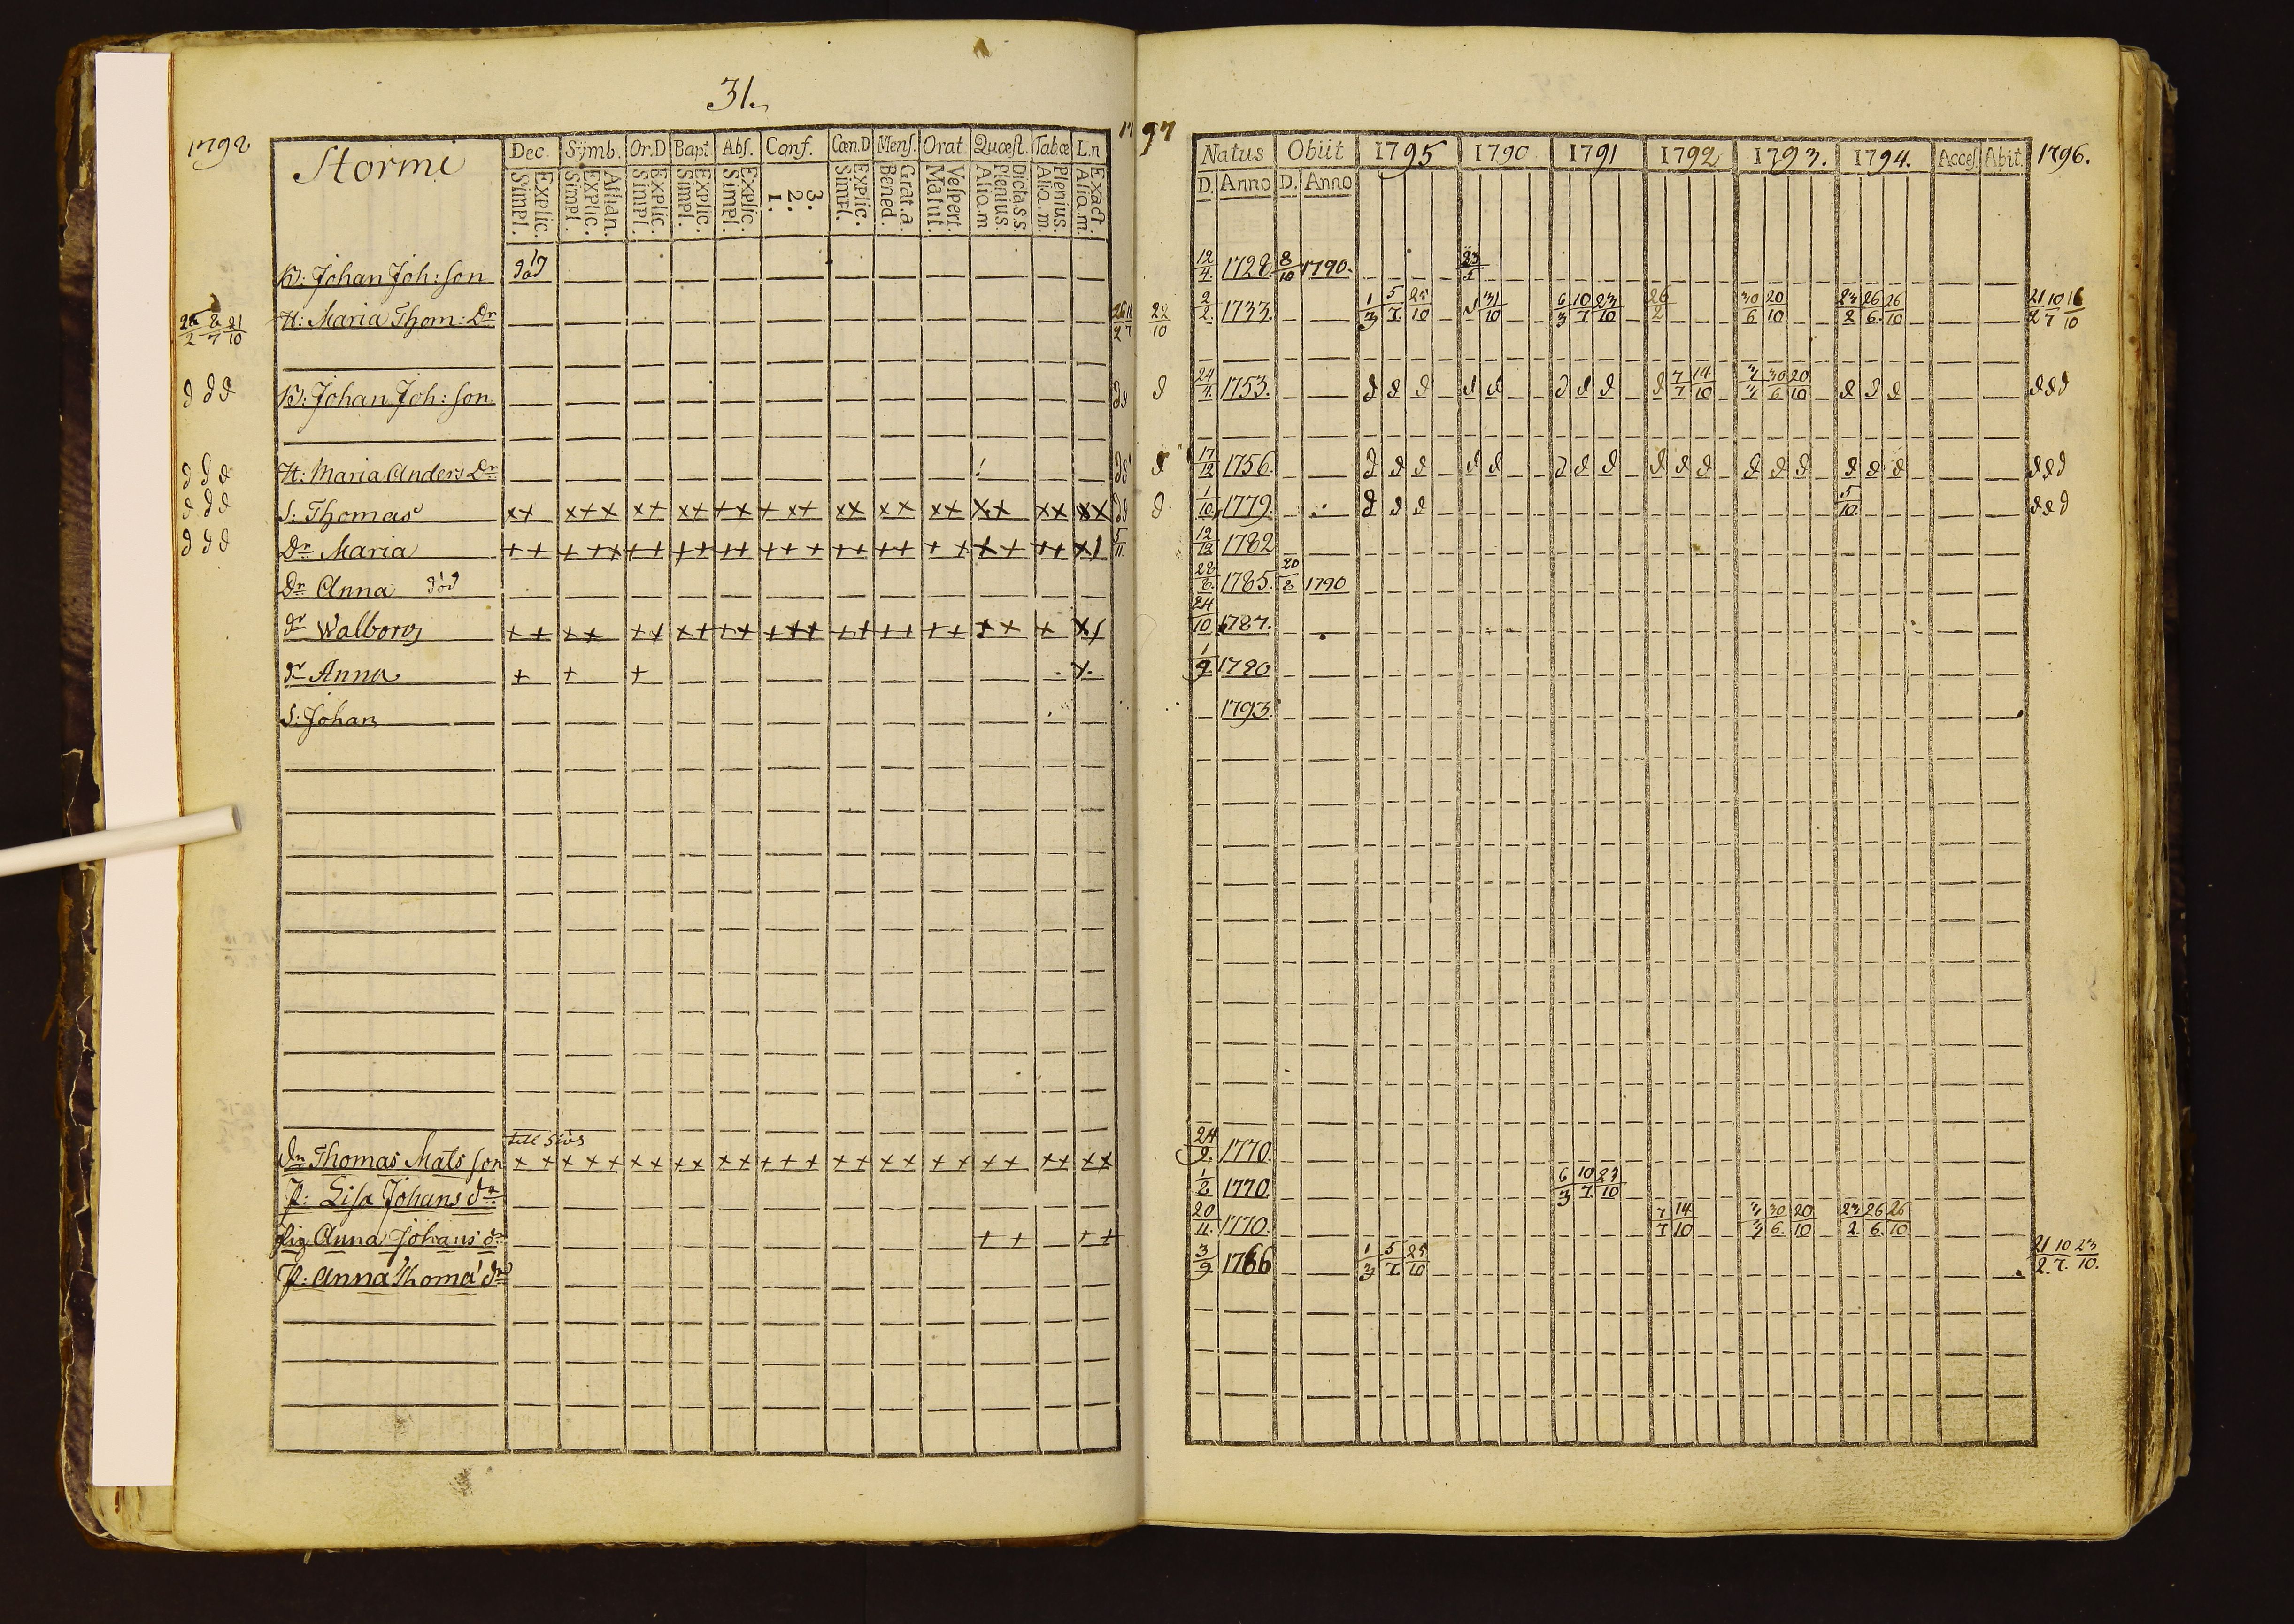 31.
1792
Stormi
Dec. Symb. Or.D Bapt. Abs. Conf. Cœn.D Mens. Orat. Quœst. Tabœ L.n
Explic. Simpl. Athan. Explic. Simpl. Explic. Simpl. Explic. Simpl. Explic. Simpl. 3. 2. 1. Explic. Simpl. Grat.a. Bened. Vespert. Matut. Dicta S S. Plenius. Alia.m Plenius. Alia.m. Exact. Alia.m.
B: Johan Joh:son död
H: Maria Thom: Dr
B: Johan Joh:son
d d d
H: Maria Anders Dr
d d d
S: Thomas xx xxx xx xx xx xxx xx xx xx xx xx xx
d d d
Dr Maria ++ +++ ++ ++ ++ +++ ++ ++ ++ ++ ++ x/
d d d
Dr Anna död
dr Walborg ++ ++ ++ ++ ++ +++ ++ ++ ++ ++ + x/
dr Anna + + + x
S: Johan
till Siös
dn Thomas Mats son xx xxx xx xx xx xxx xx xx xx xx xx xx
P: Lisa Johans dr
Pig Anna Johans dr ++ ++
P: Anna Thoma dr
1797
Natus Obiit 1795 1790 1791 1792 1793. 1794. Acces. Abit. 1796.
D. Anno D. Anno
12/4. 1728. 8/10 1790. 23/1
22/10 2/2. 1733. 1/3 5/7. 25/10 31/10 6/3 10/7 23/10 26/2 30/6 20/10 23/2 26/6. 26/10 21/2 10/7 16/10
d 24/4. 1753. d d d d d d d d d 7/7 14/10 30/6 20/10 d d d d d d
d 17/12 1756. d d d d d d d d d d d d d d d d d d d d
d 1/10 1779. d d d 5/10 d d d
12/12 1782
28/8. 1785. 20/8 1790
24/10 1787.
1/9 1790
1793.
24/9. 1770.
1/8 1770. 6/3 10/7. 23/10
20/11. 1770. 7/7 14/10 30/6. 20/10 23/2. 26/6. 26/10
3/9 1766 1/3 5/7. 25/10 21/2. 10/7. 23/10.